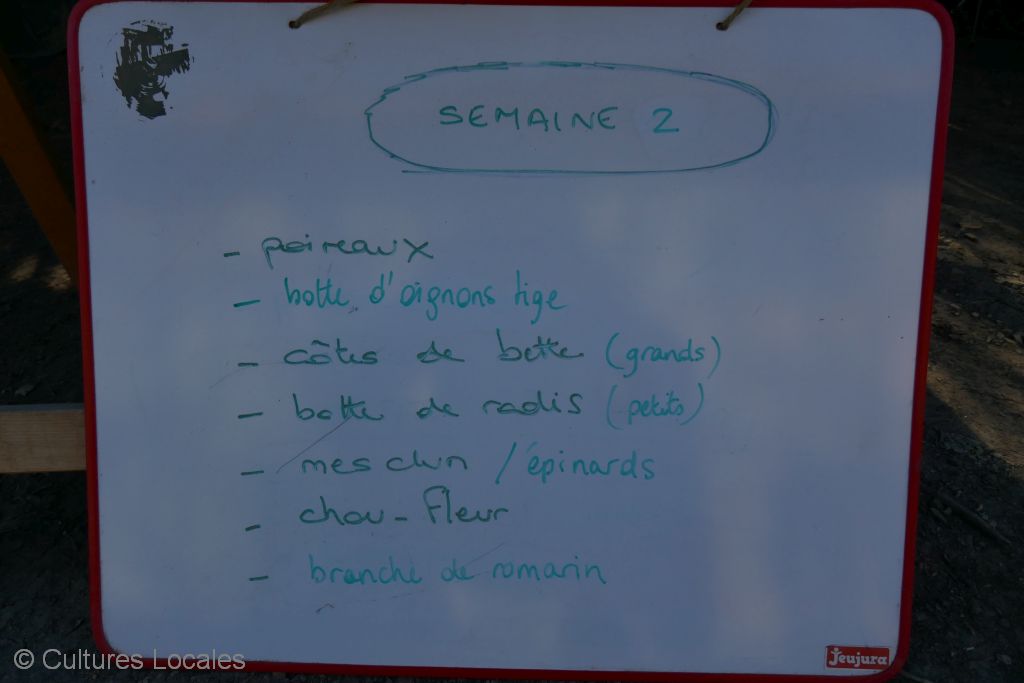 SEMAINE 2
- poireaux
- botte d'oignons tige
- côtes de bette (grands)
- botte de radis (petits)
- mesclun / épinards
- chou-fleur
- branche de romarin
© Cultures Locales
Jeujura